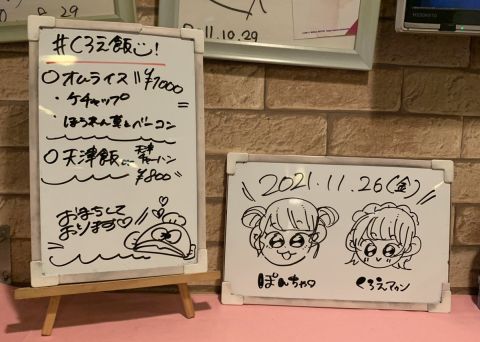 9.29
2011.10.29
#くろえ飯!
○オムライス ¥1000
・ケチャップ
・ほうれん草とベーコン
○天津飯 or 天津チャーハン
¥800
おまちして
おります♡
2021.11.26(金)
ぽんちゃ
くろえマウン